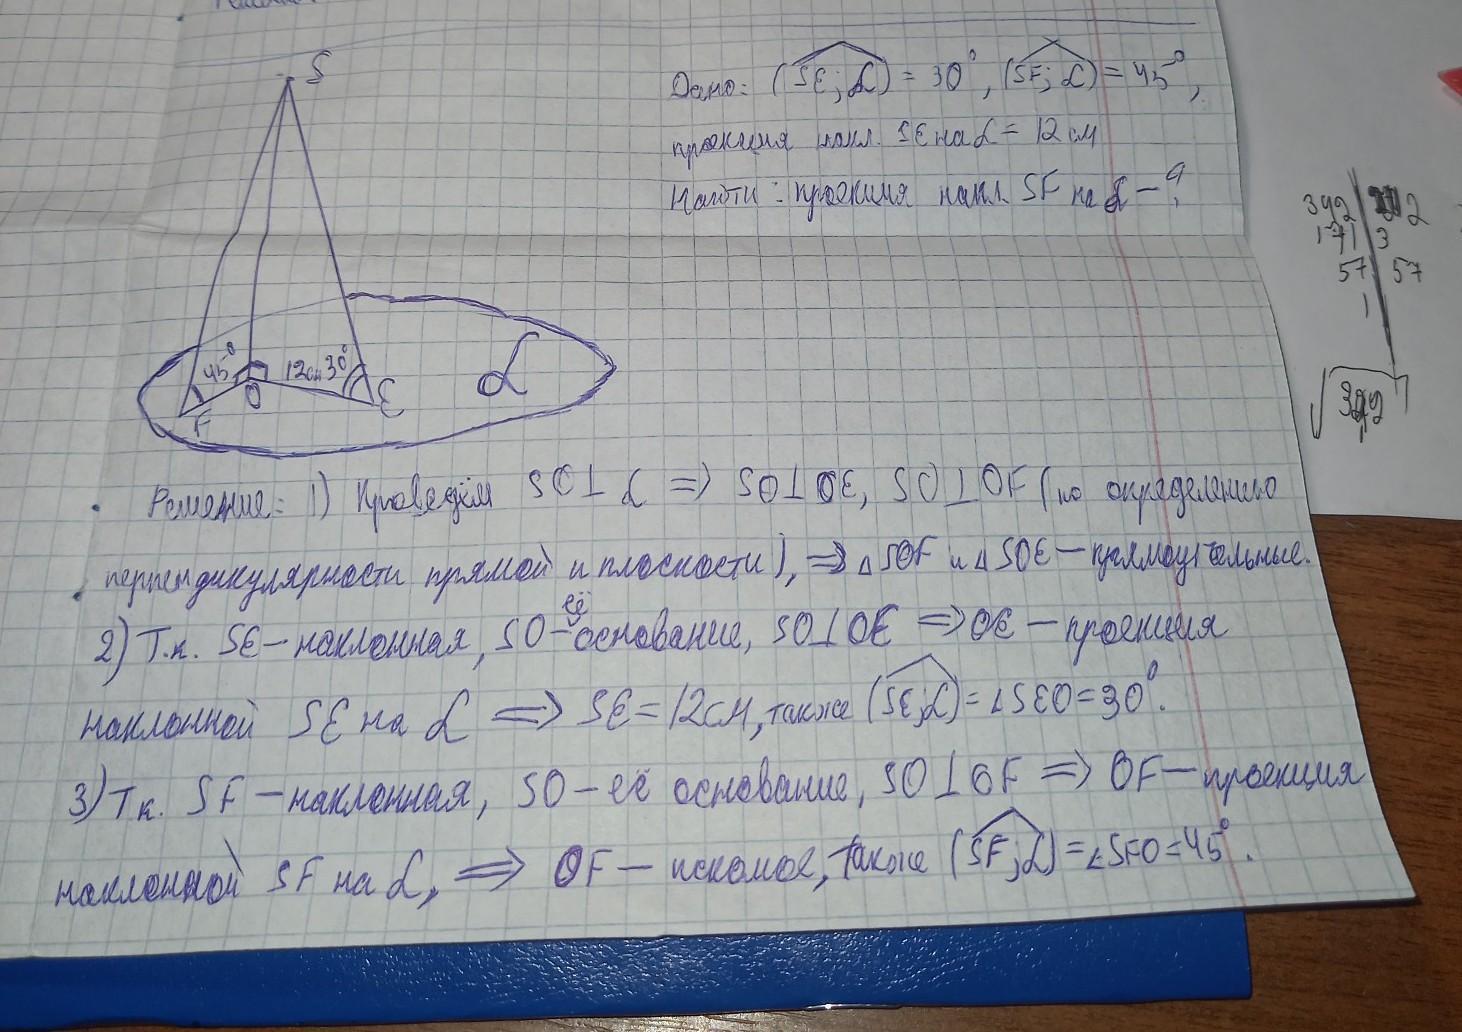 S
Дано: (SE; α) = 30°, (SF; α) = 45°,
проекция накл. SE на α = 12 см
Найти: проекция накл. SF на α - ?
45° 12см 30°
F O E α
Решение: 1) Проведём SO⊥α => SO⊥OE, SO⊥OF (по определению
перпендикулярности прямой и плоскости), => △SOF и △SOE - прямоугольные.
2) Т.к. SE - наклонная, SO - её основание, SO⊥OE => OE - проекция
наклонной SE на α => SE = 12см, также (SE; α) = ∠SEO = 30°.
3) Т.к. SF - наклонная, SO - её основание, SO⊥OF => OF - проекция
наклонной SF на α, => OF - искомое, также (SF; α) = ∠SFO = 45°.
342 2
171 3
57 57
1